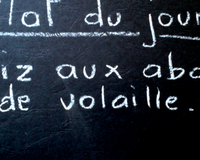 Plat du jour
iz aux aba
de volaille.